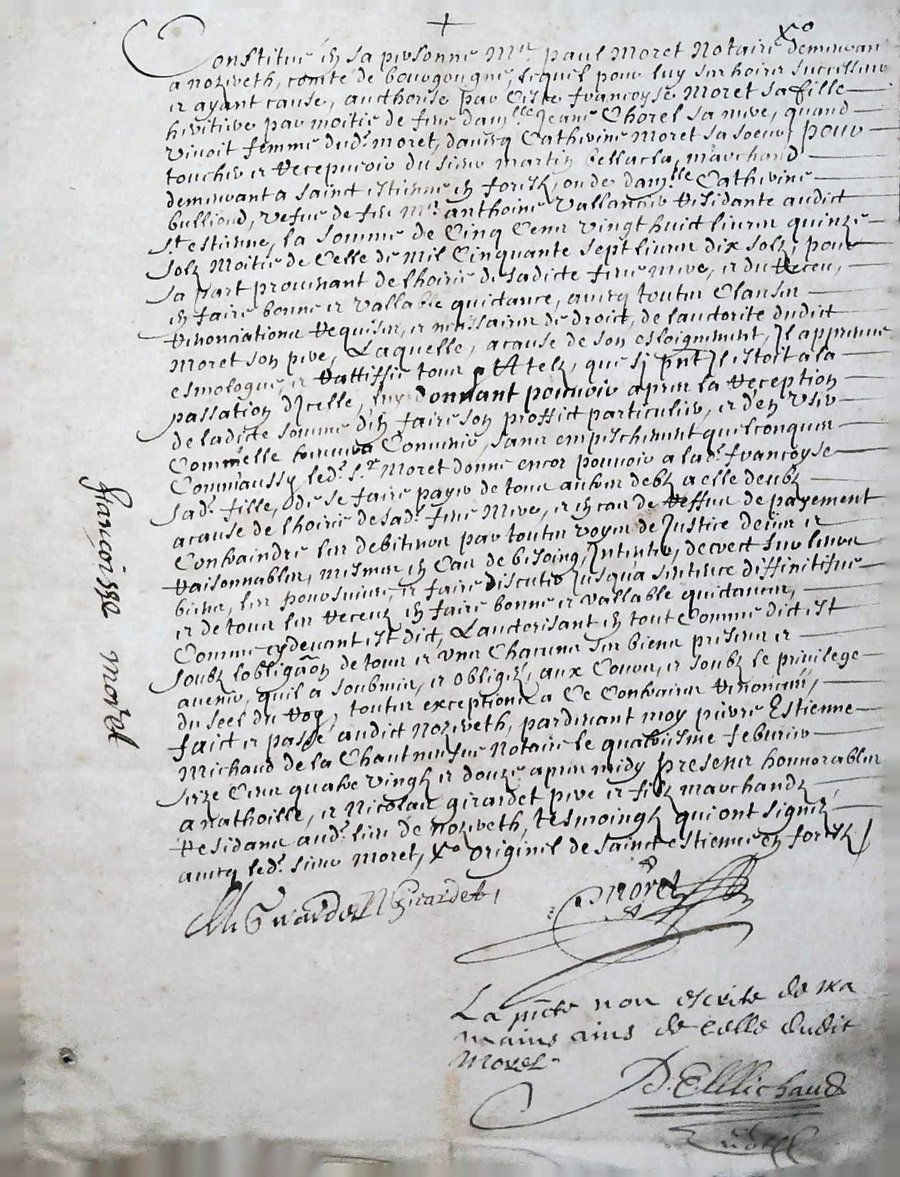 +
Constitué en sa personne Mre. paul Moret Notaire Xo demeurant
a nozereth, comté de bourgougne, lequel pour luy ses hoires successeurs
et ayant cause, authorise par Ceste françoyse Moret sa fille
heritiere par moitié de feue damlle Jeane Chorel sa mere, quand
vivoit femme dudt. moret, davecq Catherine Moret sa soeur, pour
toucher et recepuoir du sieur martin bellacla, marchand
demeurant a sainct estienne en forestz, ou de damlle Catherine
bulliond, vefue de feu Mre anthoine Vallancier residante audict
St estienne, la somme de Cinq Cens vingt huict livres quinze
solz Moitié de Celle de mil Cinquante sept livres dix solz, pour
sa part provenant de lhoirie de sadicte feue mere, et du receu,
en faire bonne et vallable quictance, avecq toutes Clauses
renonciations requises, et necessaires de droict, de lauctorité dudict
Moret son pere, Laquelle, a cause de son esloignement, Il appreuve
esmologue, et rattiffie tout telz, que si pnt Il estoit a la
passation dicelle, luy donnant pouvoir apres la reception
de ladicte somme d'en faire son proffict particulier, et d'en user
Comm'elle trouvera Convenir, sans empeschement quelconques
Commaussy ledt. Sr Moret donne encor pouvoir a ladt. françoyse
sadt. fille, de se faire payer de tous autres debtz a elle deubz
a cause de lhoirie de sadt. feue Mere, et en cas de reffus de payement
Contraindre les debiteurs par toutes voyes de Justice deues et
raisonnables, mesmes en Cas de besoing, Intenter, decret sur leurs
biens, les poursuivre, et faire discuter Jusqu'a sentence diffinitifue
et de tous les receuz en faire bonne et vallable quictances,
Comme cydevant est dict, Lauctorisant en tout Comme dict est
soubz lobligãon de tous et uns Chacuns ses biens presens et
avenir, quil a soubmis, et obligez, aux Cours, et soubz le privilege
du seel du Roy, toutes exceptions a Ce Contraires renoncees,
faict et passé audict Nozereth, pardevant moy pierre Estienne
Michaud de la Chautneufue Notaire le quatriesme feburier
seize Cens quatre vingtz et douze apres midy presens honnorables
anathoille, et Nicolas girardet pere et filz marchandz
residans audt. lieu de nozereth, tesmoingz qui ont signez
avecq ledt. sieur moret, Xo originel de sainct estienne en forestz
françoisse moret
Girardet N Girardet
Moret
La pñcte non escrite de ma
mains ains de celle dudit
Moret
P. E Michaud